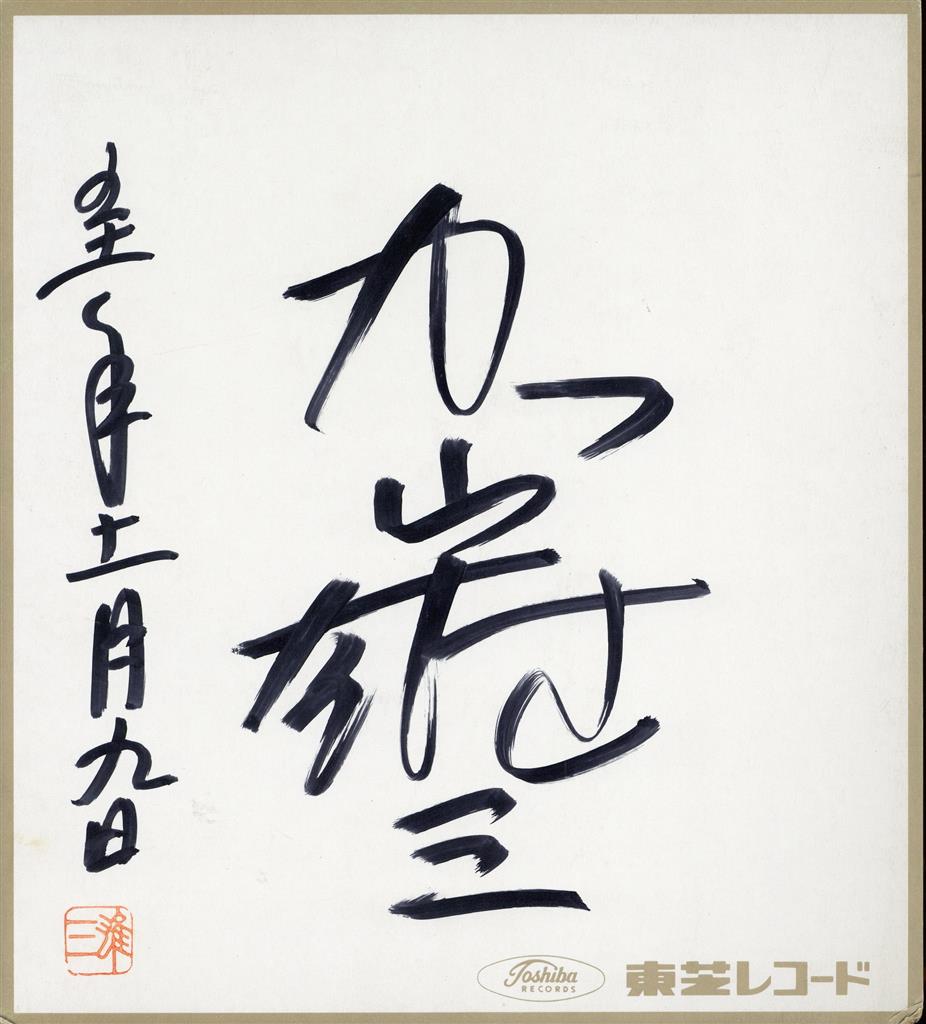 加山雄三
五十一年十一月九日
雄三
Toshiba
RECORDS
東芝レコード